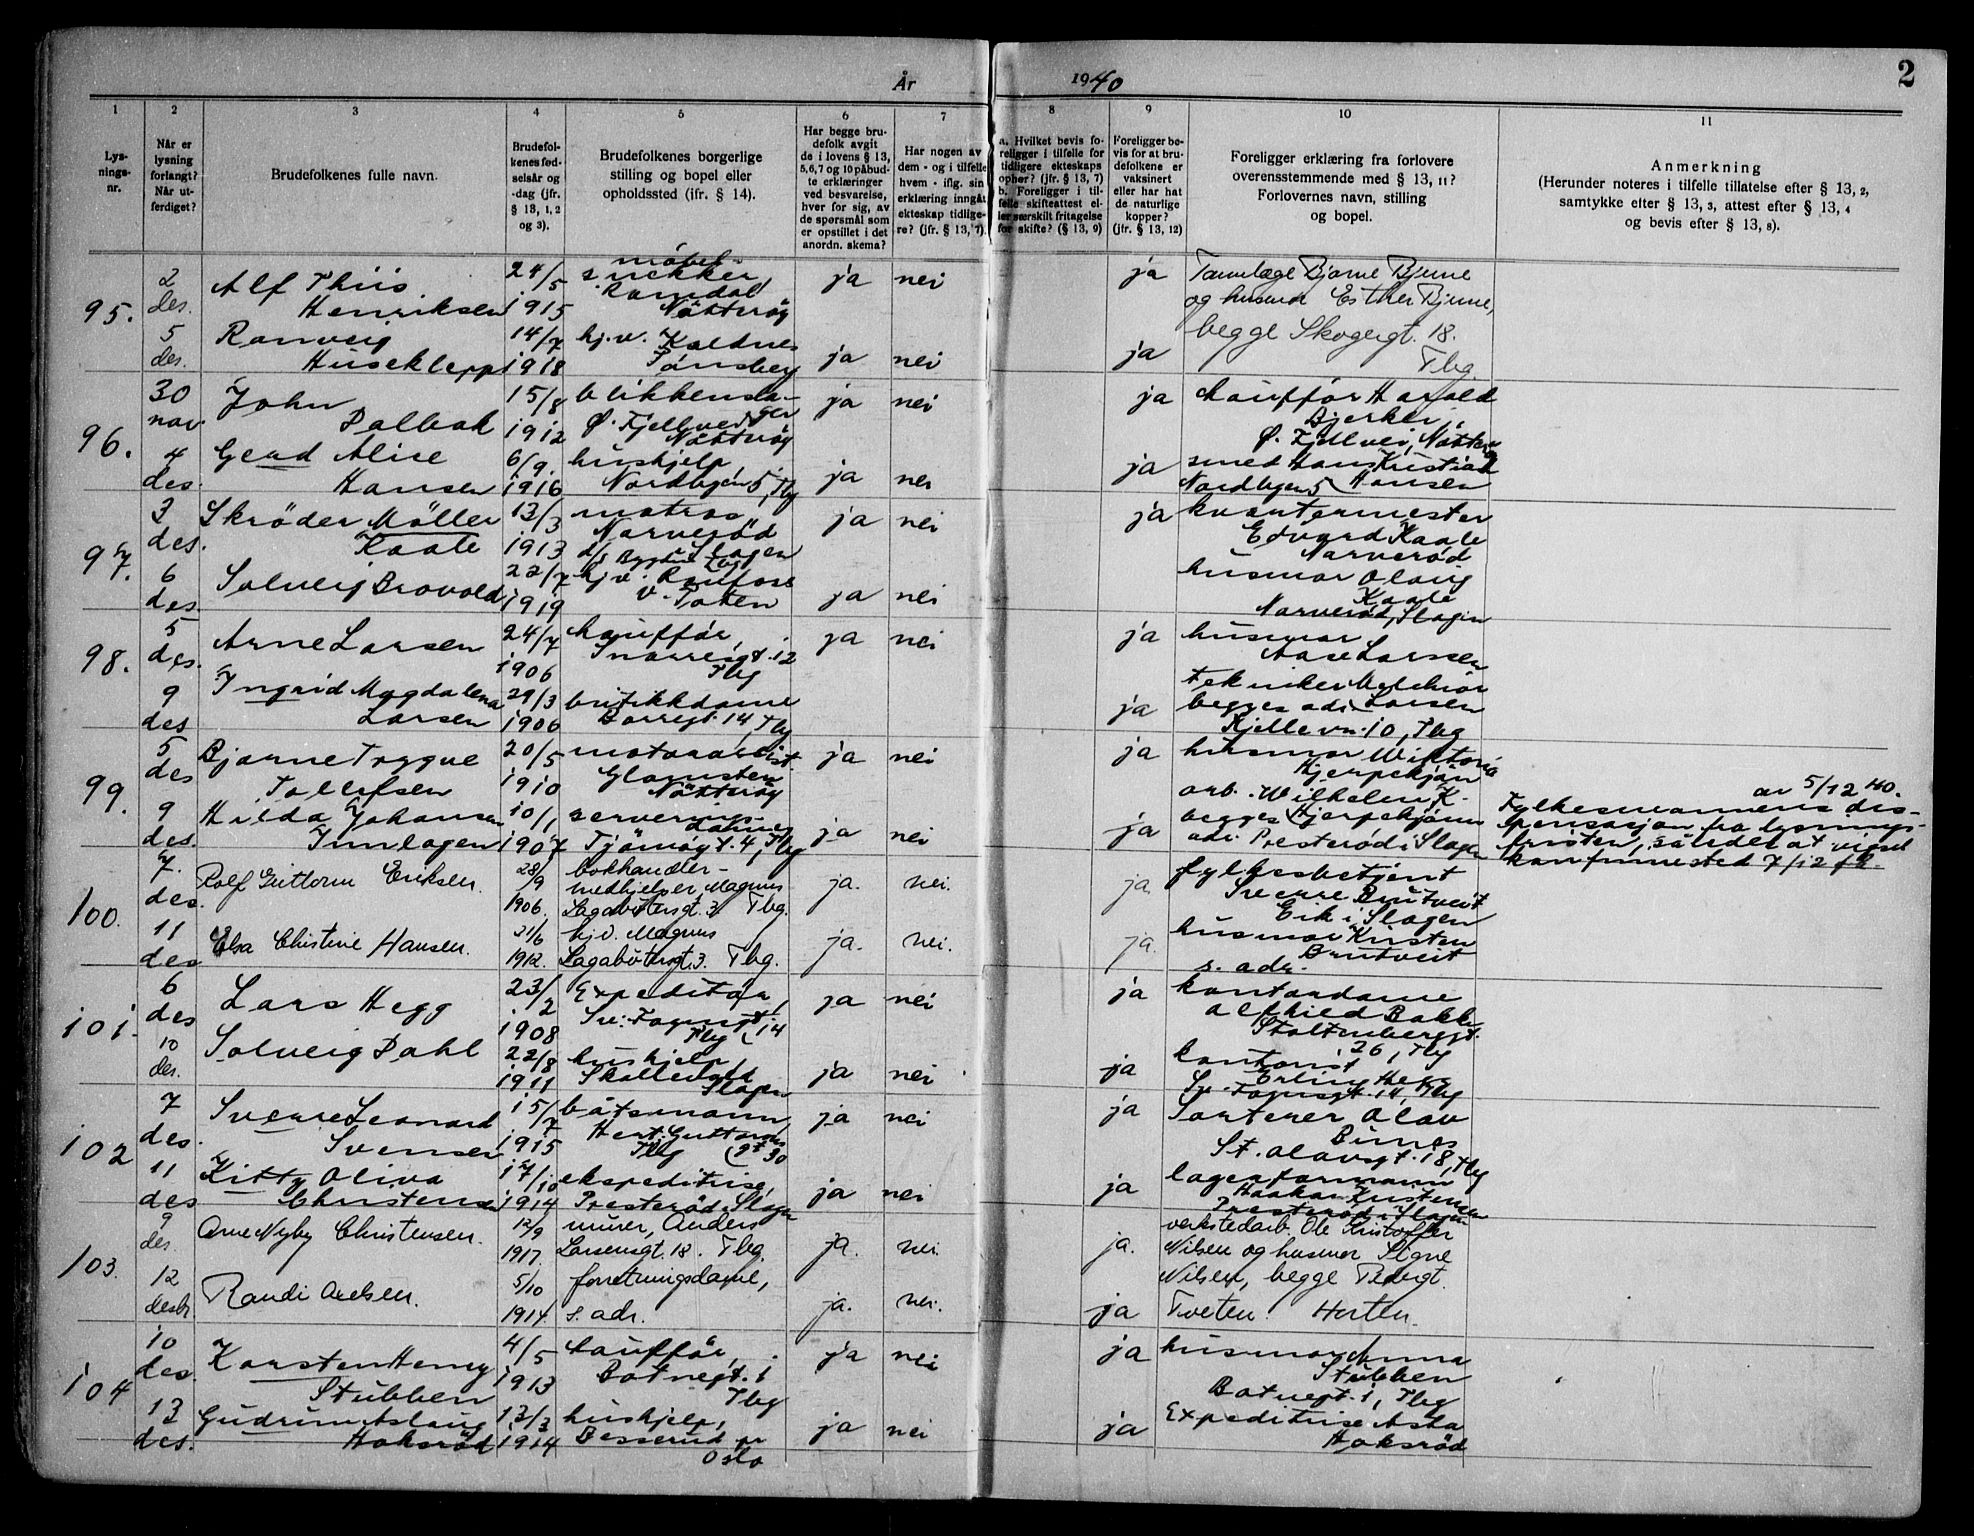 År 1940
2
1 2 3 4 5 6 7 8 9 10 11
Lys-
nings-
nr.
Når er
lysning
forlangt?
Når ut-
ferdiget?
Brudefolkenes fulle navn.
Brudefol-
kenes fød-
selsår og
-dag (jfr.
§ 13, 1, 2
og 3).
Brudefolkenes borgerlige
stilling og bopel eller
opholdssted (ifr. § 14).
Har begge bru-
defolk avgit
de i lovens § 13,
5,6,7 og 10 påbud-
te erklæringer
ved besvarelse,
hver for sig, av
de spørsmål som
er opstillet i det
anordn. skema?
Har nogen av
dem - og i tilfelle
hvem - iflg. sin
erklæring inngåt
ekteskap tidlige-
re? (jfr. § 13, 7).
a. Hvilket bevis fo-
religger i tilfelle for
tidligere ekteskaps
opher? (jfr. § 13, 7)
b. Foreligger i til-
felle skifteattest el-
ler særskilt fritagelse
for skifte? (§ 13, 9)
Foreligger be-
vis for at bru-
defolkene er
vaksinert
eller har hat
de naturlige
kopper?
(jfr. § 13, 12)
Foreligger erklæring fra forlovere
overensstemmende med § 13, 11?
Forlovernes navn, stilling
og bopel.
Anmerkning
(Herunder noteres i tilfelle tillatelse efter § 13, 2,
samtykke efter § 13, 3, attest efter § 13, 4
og bevis efter § 13, 8).
95.
2
des.
Alf Thiis
Henriksen
24/5
1915
møbel-
snekker,
Ramdal
Nötteröy
ja nei ja
Tannlæge Bjarne Bjune
og husmor Esther Bjune,
begge Skogergt. 18.
Tbg.
5
des.
Ranveig
Huseklepp
14/7
1918
hj.v. Kaldnes
Tønsberg
ja nei ja
96.
30
nov.
John
Dalbak
15/8
1912
blikkensla-
ger
Ø. Fjellvei
Nötteröy
ja nei ja
chauffør Harald
Bjerke,
Ø. Fjellvei, Nötterøy
4
des.
Gerd Alise
Hansen
6/9.
1916
hushjelp,
Nordbyen 5, Tbg
ja nei ja
smed Hans Kristian
Nordbyen 5 Hansen
97.
3
des.
Skröder Möller
Kaale
13/3
1913
matros
Narveröd
Slagen
ja nei ja
kvartermester
Edvard Kaale
Narveröd
6
des
Solveig Brovold
22/7
1919
hj.v. Raufoss
V. Toten
ja nei
husmor Olaug
Kaale
Narveröd, Slagen
98.
5
des.
Arne Larsen
24/7
1906
chauffør,
Snorresgt. 12
Tbg
ja nei ja
husmor
Aase Larsen
9
des
Ingrid Magdalena
Larsen
29/3
1906
butikkdame
Borregt. 14, Tbg
ja
tekniker Melchior
begges adr. Larsen
Kjelle vn. 10, Tbg
99.
5
des
Bjarne Trygve
Tollefsen
20/5
1910
Glomsten
Nötteröy
ja nei ja
husmor Wiktoria
Hjerpekjøn
9
des.
Hilda Johansen
Tunlagen
10/1
1907
serverings-
dame,
Tjömegt. 4, Tbg
ja nei ja
arb. Wilhelm K.
begges Hjerpekjønn
adr. Presterød i Slagen
av 5/12 40.
Fylkesmannens dis-
pensasjon fra lysnings-
fristen, således at vigsel
kan finne sted 7/12
100.
7.
des.
Rolf Guttorm Eriksen.
28/9
1906.
bokhandler-
medhjelper Magnus
Lagabötersgt. 3. Tbg.
ja. nei. ja.
fylkesbetjent
Sverre Brutveit
Eik i Slagen
11
des
Elsa Christine Hansen.
21/6
1912.
hj.v. Magnus
Lagabötersgt. 3. Tbg.
ja. nei. ja.
husmor Kristen
Brutveit
s. adr.
101.
6
des
Lars Hegg
23/2
1908
Expeditør,
Sv. Foynsgt. 14
Tbg
ja nei ja
kontordame
Alfhild Bakke
Stoltenberggt.
26, Tbg
10
des.
Solveig Dahl
22/8
1911
hushjelp,
Skallevold
Slagen
ja nei ja
kontorist
Erling Hegg
Sv. Foynsgt. 14, Tbg
102
7
des.
Sverre Leonard
Svensen
15/7
1915
båtsmann
Hert. Guttorms
Tbg gt 30
ja nei ja
Sorterer Olav
Bunes
St. Olavsgt. 18, Tbg
11
des
Kitty Oliva
Christensen
17/10
1914
ekspeditrise,
Presteröd, Slagen
ja nei ja
lagerformann
Haakon Kristensen
Presteröd i Slagen
103.
9
des.
Arne Nyby Christensen.
12/9
1917.
murer, Anders
Larsensgt. 12. Tbg.
ja. nei. ja.
verkstedarb. Ole Kristoffer
Nilsen og husmor Signe
Nilsen, begge Pedergt.
Tveten. Horten.
12
desbr.
Randi Axelsen.
5/10
1914.
forretningsdame,
s. adr.
ja. nei. ja
104
10
des.
Karsten Henry
Stubben
4/5
1913
chauffør,
Botnegt. 1
Tbg
ja nei ja
husmor Anna
Stubben
Botnegt. 1, Tbg
13
des.
Gudrun Aslaug
Hoksröd
13/3
1914
hushjelp,
Besserud pr
Oslo
ja nei ja
Expeditrise Asta
Hoksröd